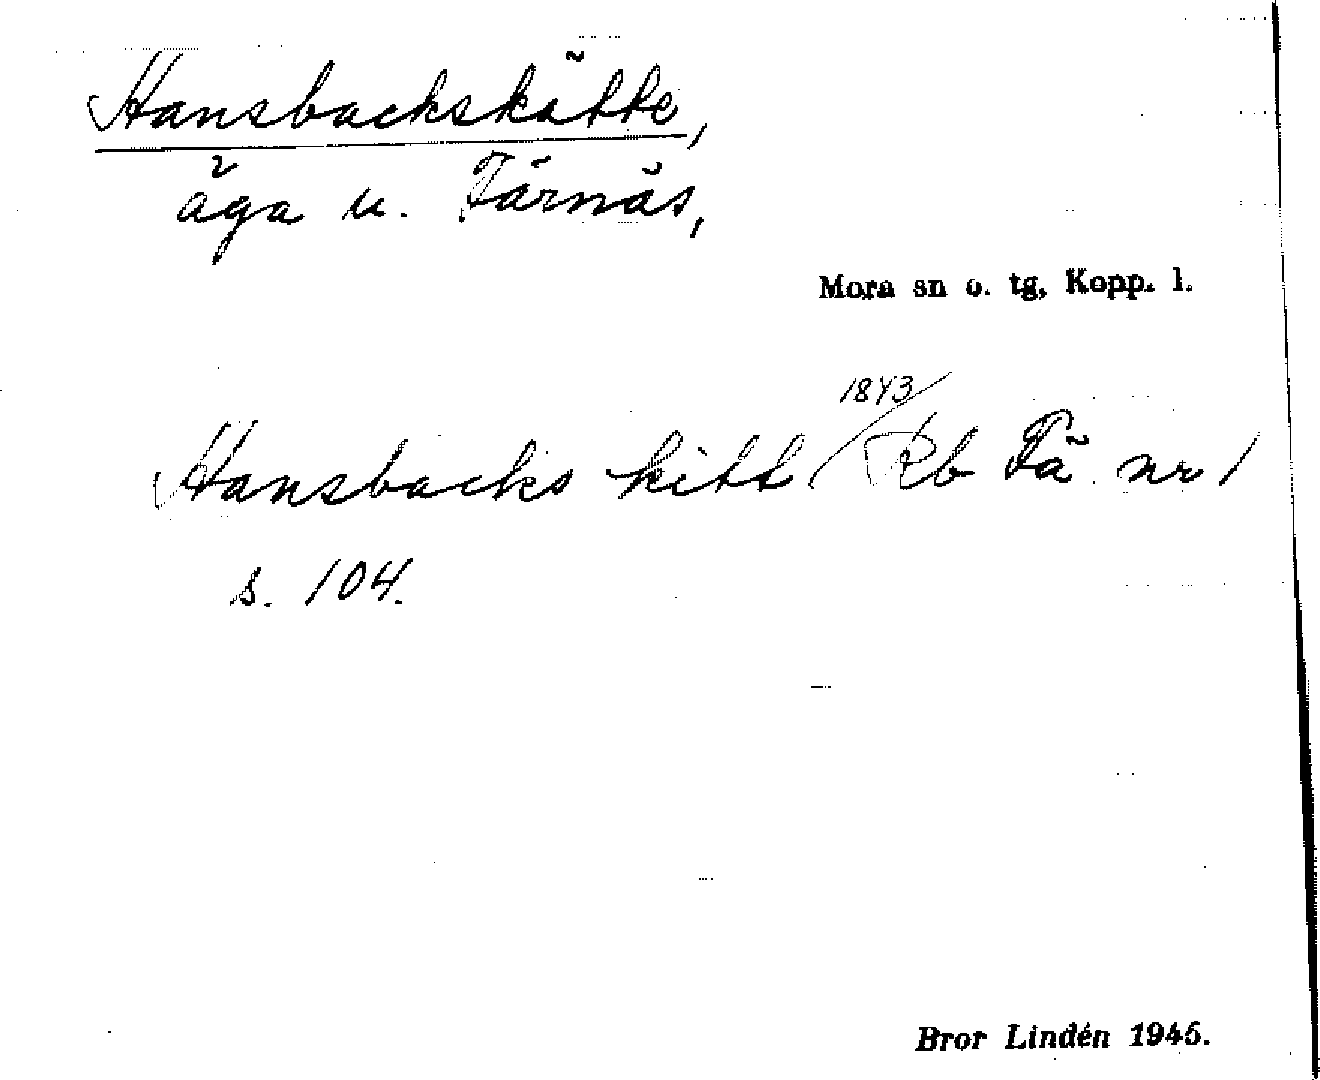 Hansbackskätte,
äga u. Färnäs,
Mora sn o. tg, Kopp. l.
Hansbacks kitt 1843/Rb Fä nr 1
s. 104.
Bror Lindén 1945.